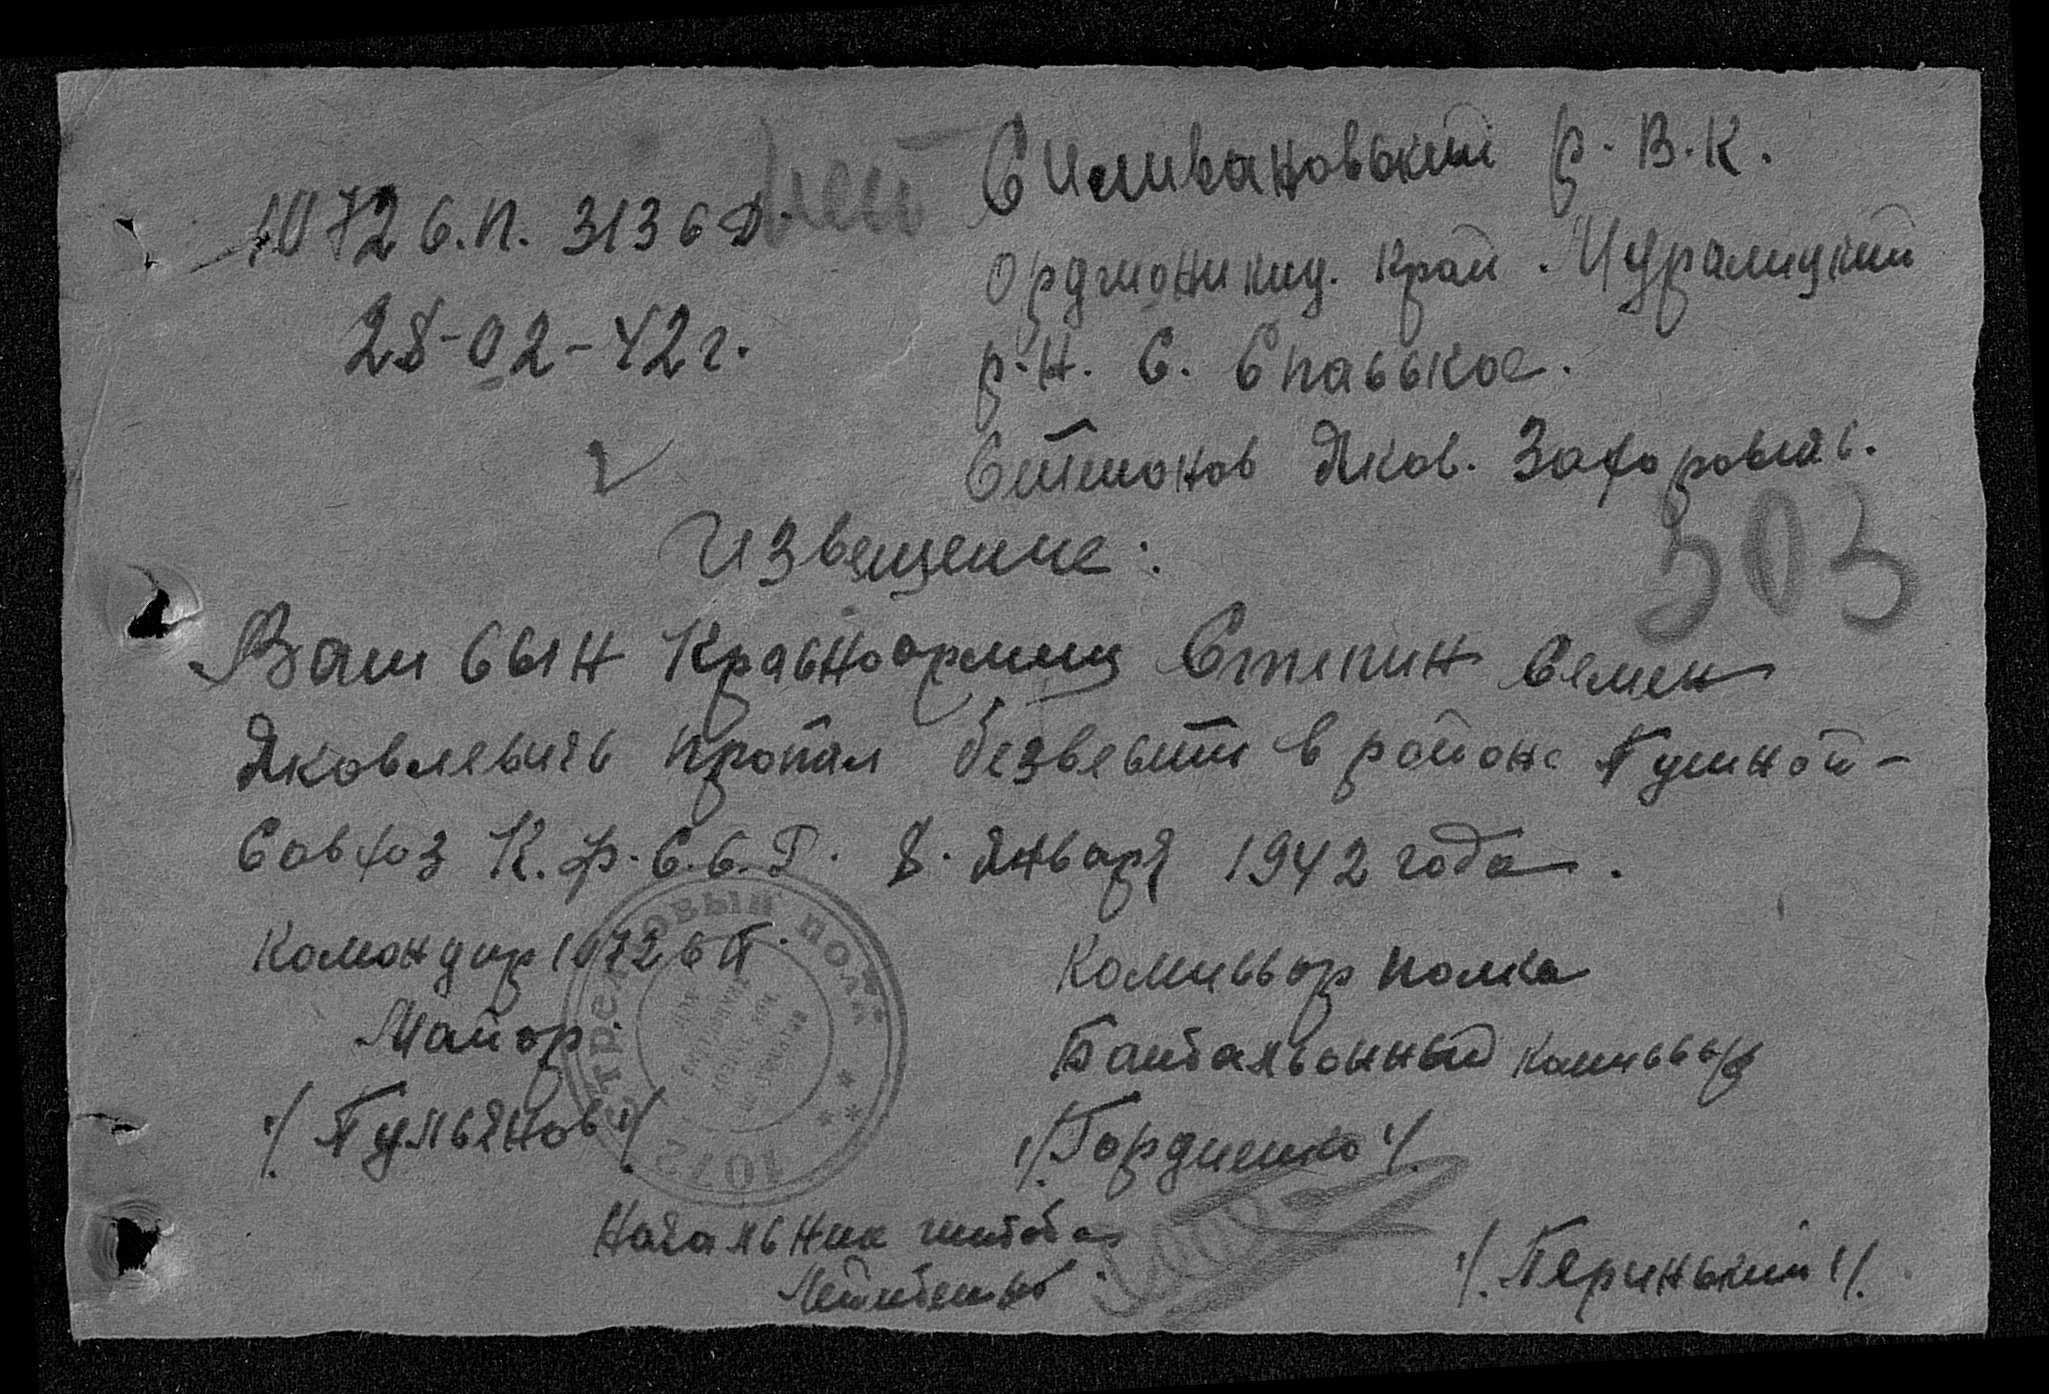 1072 с.п. 313 с д.
28-02-42 г.
Силивановский р. В. К.
Орджоникид. край.
р-н. с. Спасское.
Яков. Захоровичь.
Извещение:
303
Ваш сын Красноормеец Степин Семен
Яковлевичь пропал безвести в районе Пушной-
Совхоз К. ф. С. С. Р. 8. Января 1942 года.
Командир 1072 с п.
Майор.
/ Пульянов /
Комиссар полка
Баттальонный комиссар
/ Гордиенко /
Начальник штоба
/ Перинский /
Стрелковый полк
1072